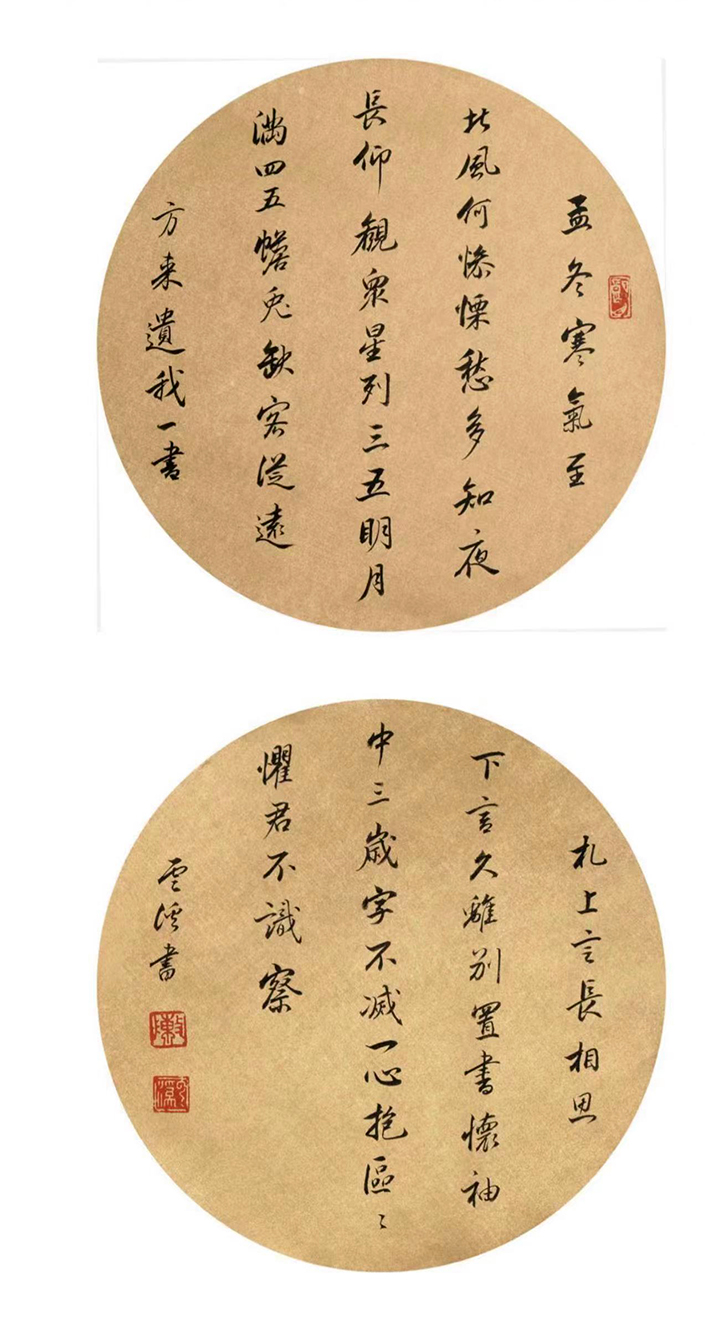 孟冬寒氣至
北風何慘慄愁多知夜
長仰觀衆星列三五明月
滿四五蟾兔缺客從遠
方来遺我一書
札上言長相思
下言久離别置書懷袖
中三歲字不滅一心抱區〻
懼君不識察
雲溪書